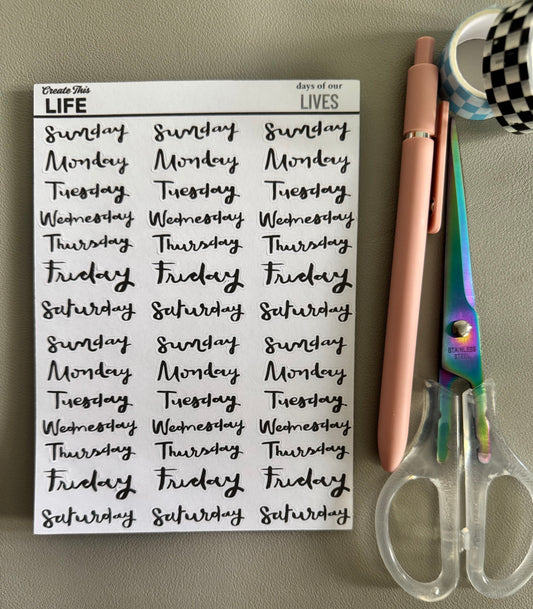 Create This
LIFE
days of our
LIVES
Sunday Sunday Sunday
Monday Monday Monday
Tuesday Tuesday Tuesday
Wednesday Wednesday Wednesday
Thursday Thursday Thursday
Friday Friday Friday
Saturday Saturday Saturday
Sunday Sunday Sunday
Monday Monday Monday
Tuesday Tuesday Tuesday
Wednesday Wednesday Wednesday
Thursday Thursday Thursday
Friday Friday Friday
Saturday Saturday Saturday
STAINLESS
STEEL